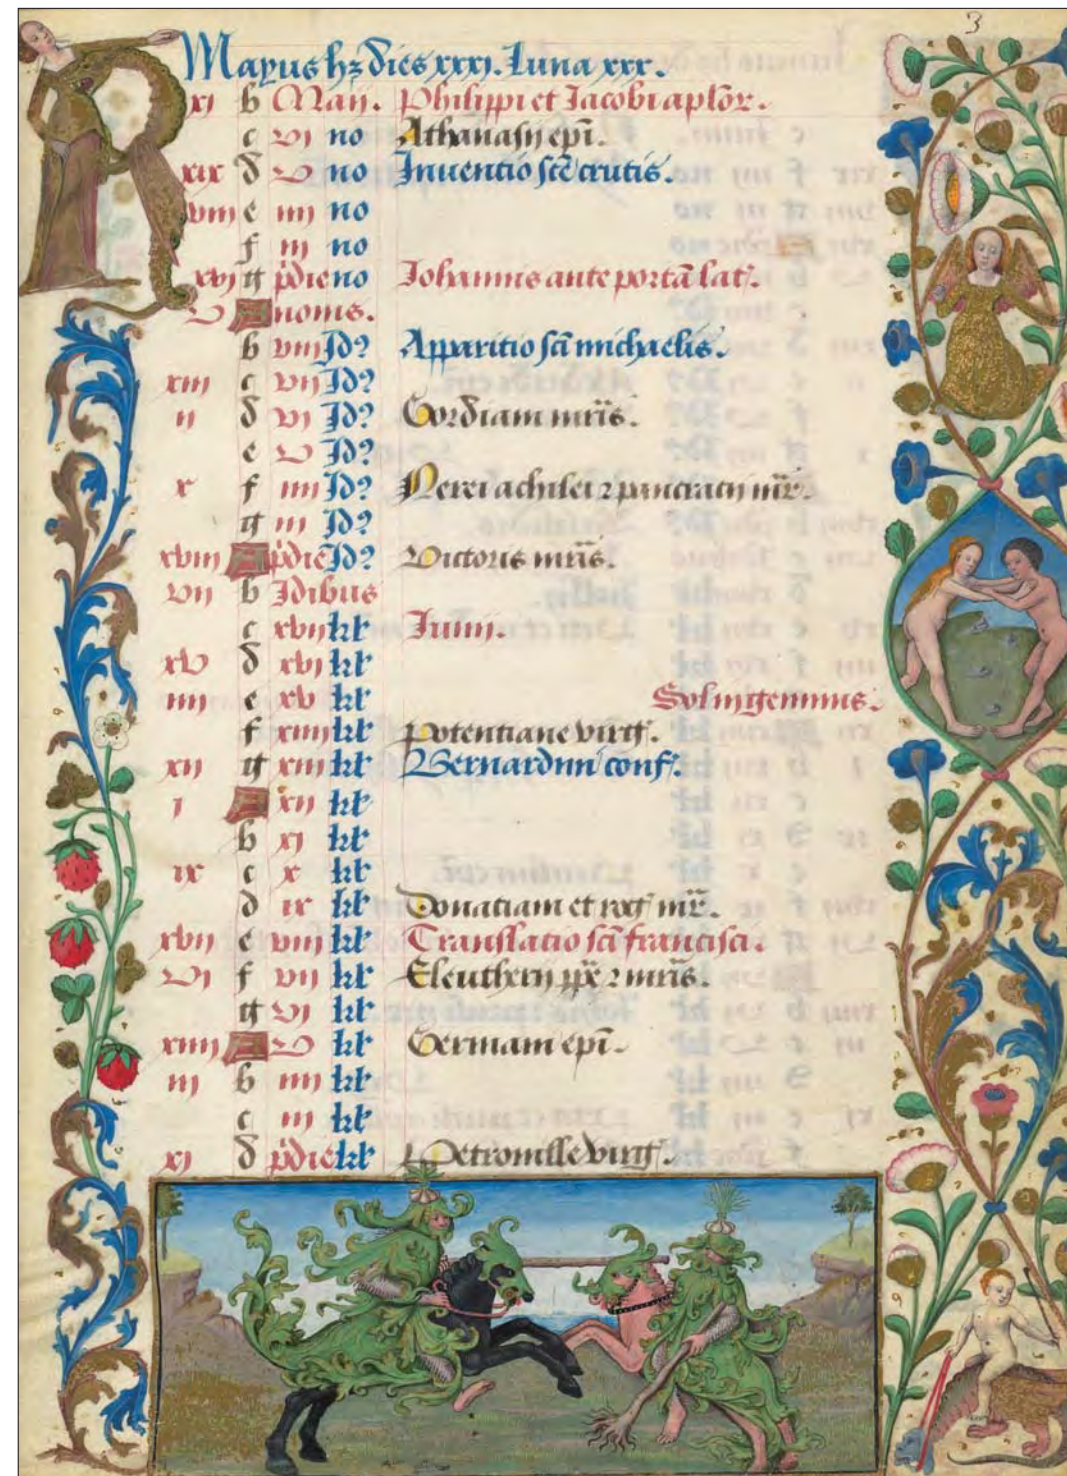 3
Mayus hz dies xxxj. Luna xxx.
xj b Maij. Philippi et Jacobi aplor.
c vj no Athanasij epi.
xix d v no Inuentio sce crucis.
viij e iiij no
f iij no
xvj g pdie no Johannis ante porta lat.
v A nonis.
b viij Id? Apparitio sci michaelis.
xiij c vij Id?
ij d vj Id? Gordiani mris.
e v Id?
x f iiij Id? Nerei achilei 2 pancratij mr.
g iij Id?
xviij A pdie Id? Victoris mris.
vij b Idibus
c xvij kl' Junij.
xv d xvj kl'
iiij e xv kl' Sol in geminis.
f xiiij kl' Potentiane virg.
xij g xiij kl' Bernardini conf.
j A xij kl'
b xj kl'
ix c x kl'
d ix kl' Donatiani et rog mr.
xvij e viij kl' Translatio sci francisci.
vj f vij kl' Eleutherij pp 2 mris.
g vj kl'
xiiij A v kl' Germani epi.
iij b iiij kl'
c iij kl'
xj d pdie kl' Petronille virg.